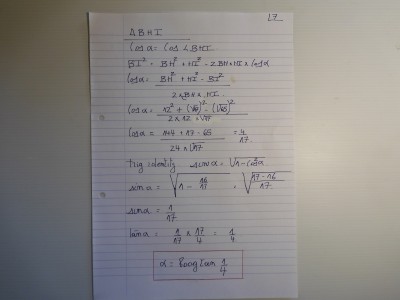 L7
△BHI
Cos α = Cos ∠BHI
BI² = BH² + HI² - 2BH×HI×Cos α
Cos α = BH² + HI² - BI² / 2×BH×HI
Cos α = 12² + (√17)² - (√65)² / 2×12×√17
Cos α = 144 + 17 - 65 / 24√17 = 4 / 17
Trig identity sin α = √1-cos²α
sin α = √1 - 16/17 = √17-16/17
sin α = 1/17
tan α = 1/17 × 17/4 = 1/4